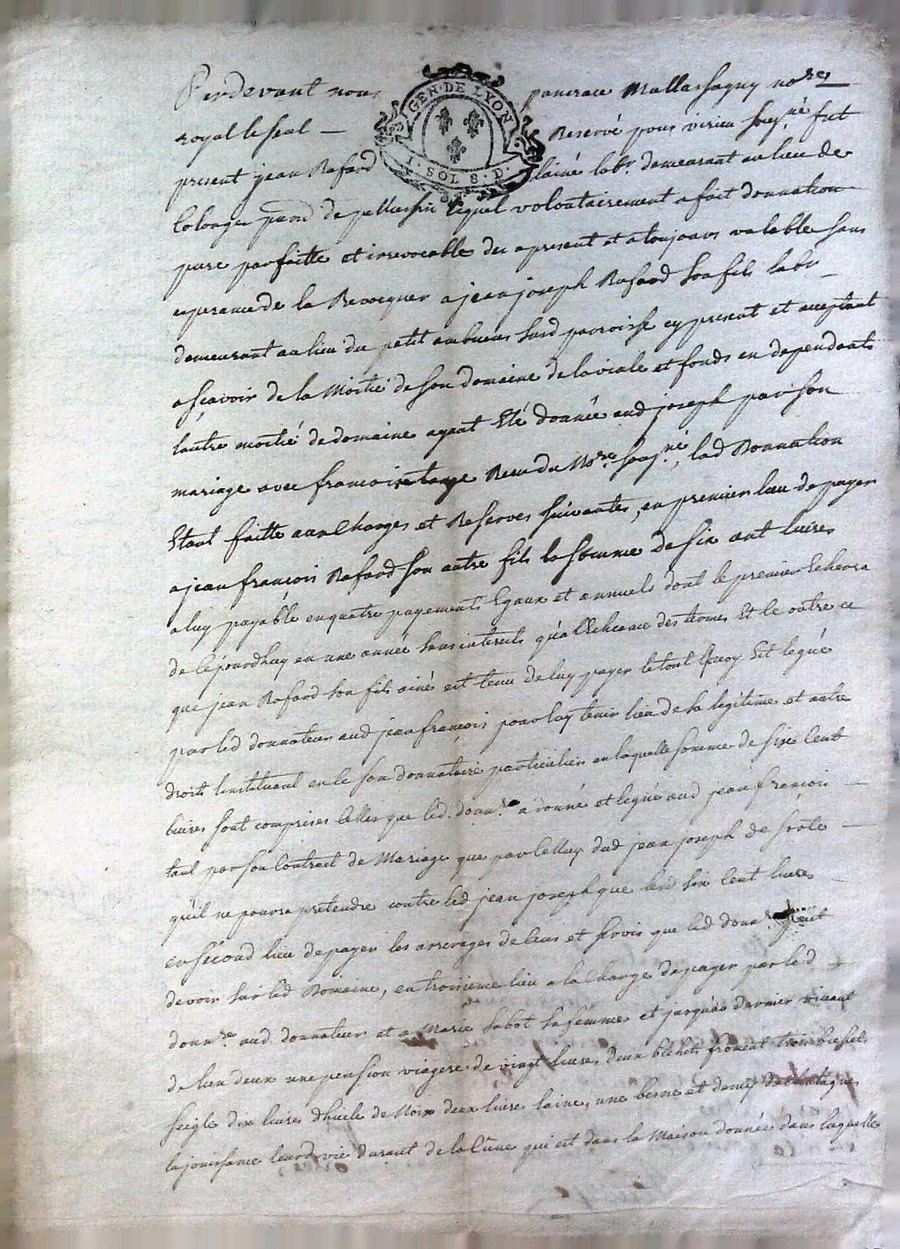 Pardevant nous pancrace Mallassagny no.re
GEN. DE LYON
I. SOL 8. D.
royal le seal — Reservé pour virieu soug.né fut
present jean Rafard laîné lab.r demeurant au lieu de
parr. de pellussin lequel volontairement a fait donnation
pure parfaitte et irrevocable des apresent et a toujours valable sans
esperance de la Revocquer a jean joseph Rafard son fils labr —
demeurant au lieu du petit ambuens susd parroisse cy present et acceptant
a sçavoir de la Moitié de son domaine de la viale et fonds en dependants
lautre moitié de domaine ayant Eté donnée aud joseph par son
mariage avec francoise Receu du No.re soug.né, lad Donnation
Etant faitte aux Charges et Reserves suivantes, en premier lieu de payer
a jean françois Rafard son autre fils la somme de six cent livres
a luy payable en quatre payements Egaux et annuels dont le premier Echeera
de ce jourdhuy en une année sans interets qu'a l'Echeance des termes Et le outre ce
que jean Rafard son fils ainé est tenu de luy payer le tout Quoy Est legué
par led donnateur aud jean françois pour luy tenir lieu de sa legitime et autre
droits linstituant en ce son donnataire particulier en laquelle somme de six Cent
livres sont comprises Celles que led. donn.r a donné et legué aud jean françois —
tant par son Contract de Mariage que par Celluy dud jean joseph de sorte —
qu'il ne pourra pretendre contre led jean joseph que lesd six Cent livres —
en sécond lieu de payer les arrerages de Cens et servis que led donn.r peut
devoir sur led Domaine, en troisieme lieu a la Charge de payer par led —
donn.re aud. donnateur et a Marie Sabot sa femme et jusqu'au darnier vivant
de Ceu deux une pension viagere de vingt livres, deux bichets froment trois bichets
seigle dix livres dhuile de Noix deux livres laine, une benne et demy de Chatagnes
la jouissance leurd vie durant de la Cûve qui est dans la Maison donnée dans laquelle